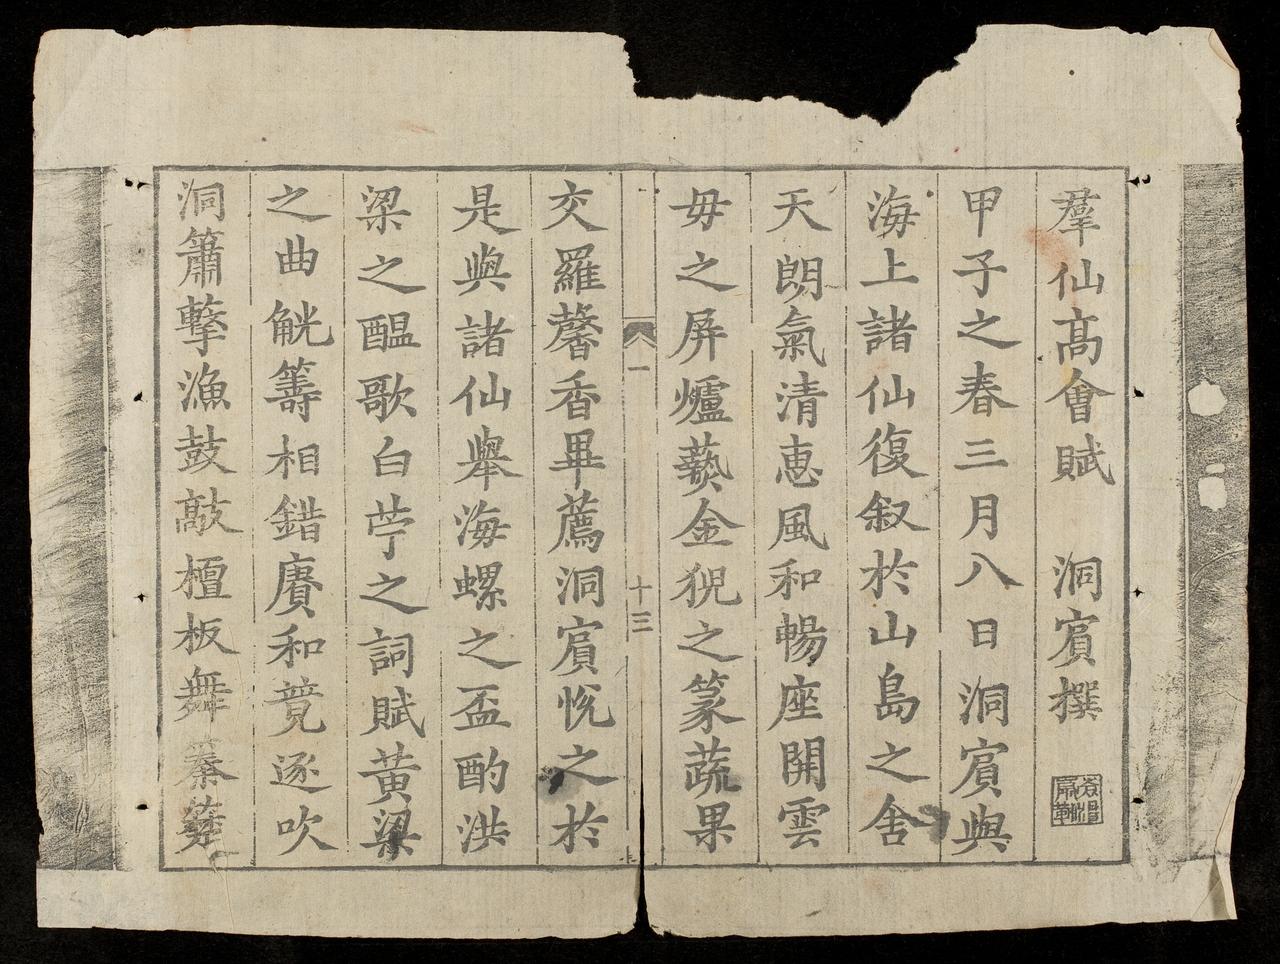 羣仙髙會賦　洞賔撰
甲子之春三月八日洞賔與
海上諸仙復叙於山島之舍
天朗氣清惠風和暢座開雲
毋之屏爐藝金猊之篆蔬果
一
十三
交羅馨香畢薦洞賔恱之於
是與諸仙舉海螺之盃酌洪
梁之醖歌白苧之詞賦黃粱
之曲觥籌相錯賡和竟逐吹
洞簫擊漁鼓敲檀板舞